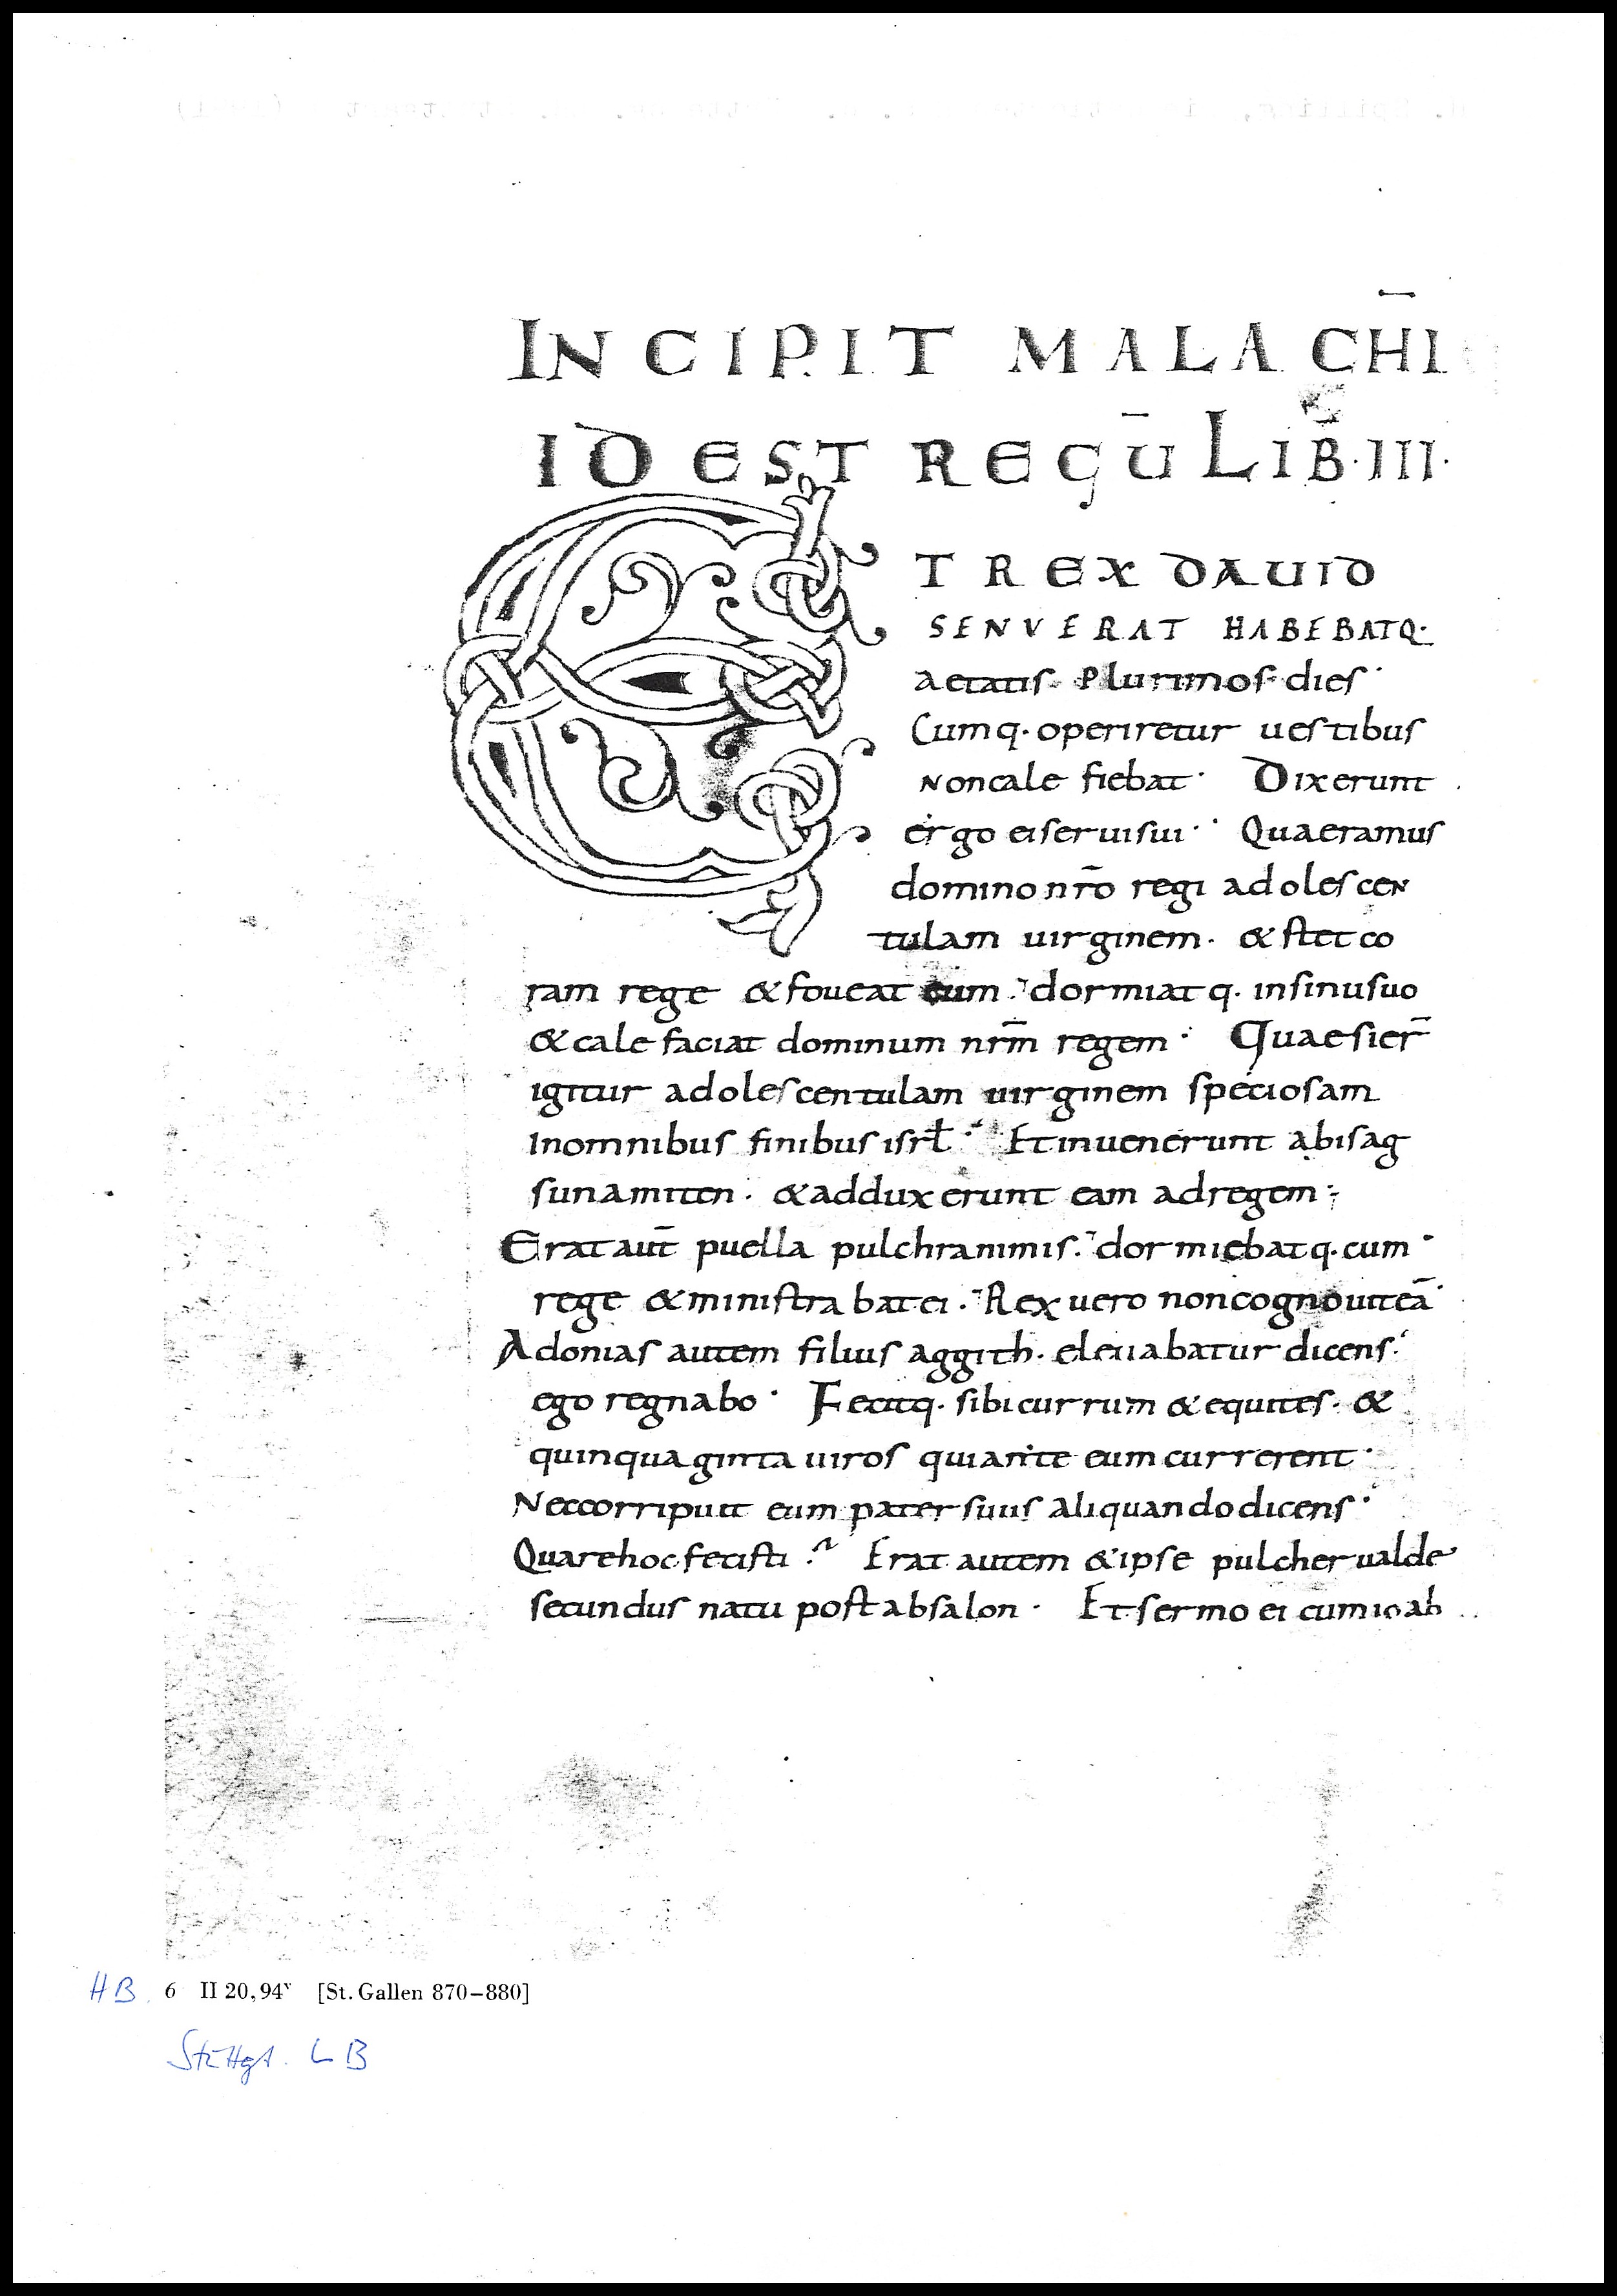 INCIPIT MALACHI̅
ID EST REGU̅ LIB̅·III·
ET REX DAVID
SENVERAT HABEBATQ·
aetatis· Plurimos dies·
Cumq· operiretur uestibus
Noncale fiebat· Dixerunt
ergo eiseruisui· Quaeramus
dominonr̅o regi adolescen
tulam uirginem· & stet co
ram rege & foueat eum· dormiatq· insinusuo
& calefaciat dominum nrm̅ regem· Quaesier̅
igitur adolescentulam uirginem speciosam
Inomnibus finibus isrł· Et inuenerunt abisag
sunamiten· & adduxerunt eam adregem·
Erat aut̅ puella pulchranimis· dormiebatq· cum
rege & ministrabatei· Rex uero noncognouitea̅
Adonias autem filius aggith· eleuabatur dicens·
ego regnabo· Fecitq· sibi currum & equites· &
quinquaginta uiros quiante eum currerent·
Neccorripuit eum pater suus aliquando dicens·
Quarehoc fecisti? Erat autem & ipse pulcher ualde
secundus natu post absalon· Et sermo ei cum ioab
HB 6 II 20, 94ᵛ [St. Gallen 870–880]
Stuttgt. LB